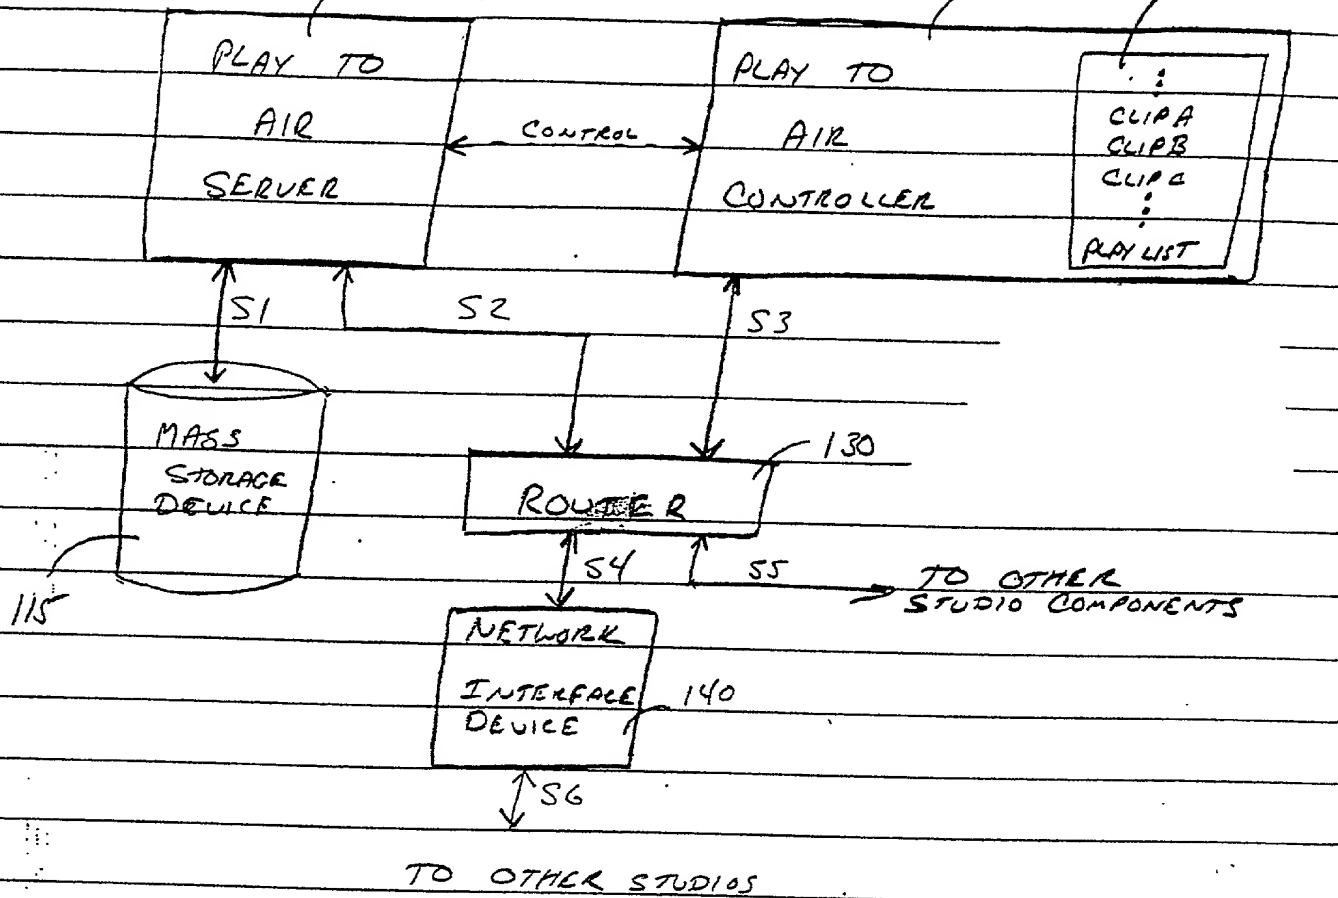 PLAY TO
AIR
SERVER
CONTROL
PLAY TO
AIR
CONTROLLER
CLIP A
CLIP B
CLIP C
PLAYLIST
S1
S2
S3
MASS
STORAGE
DEVICE
115
130
ROUTER
S4
S5
TO OTHER
STUDIO COMPONENTS
NETWORK
INTERFACE
DEVICE
140
S6
TO OTHER STUDIOS